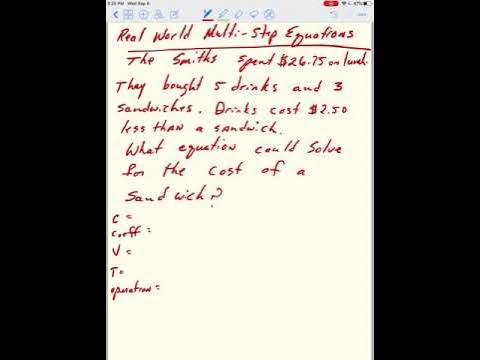 3:25 PM Wed Sep 6
47%
Real World Multi-Step Equations
The Smiths spent $26.75 on lunch.
They bought 5 drinks and 3
sandwiches. Drinks cost $2.50
less than a sandwich.
What equation could solve
for the cost of a
sandwich?
C =
coeff =
V =
T=
operation=